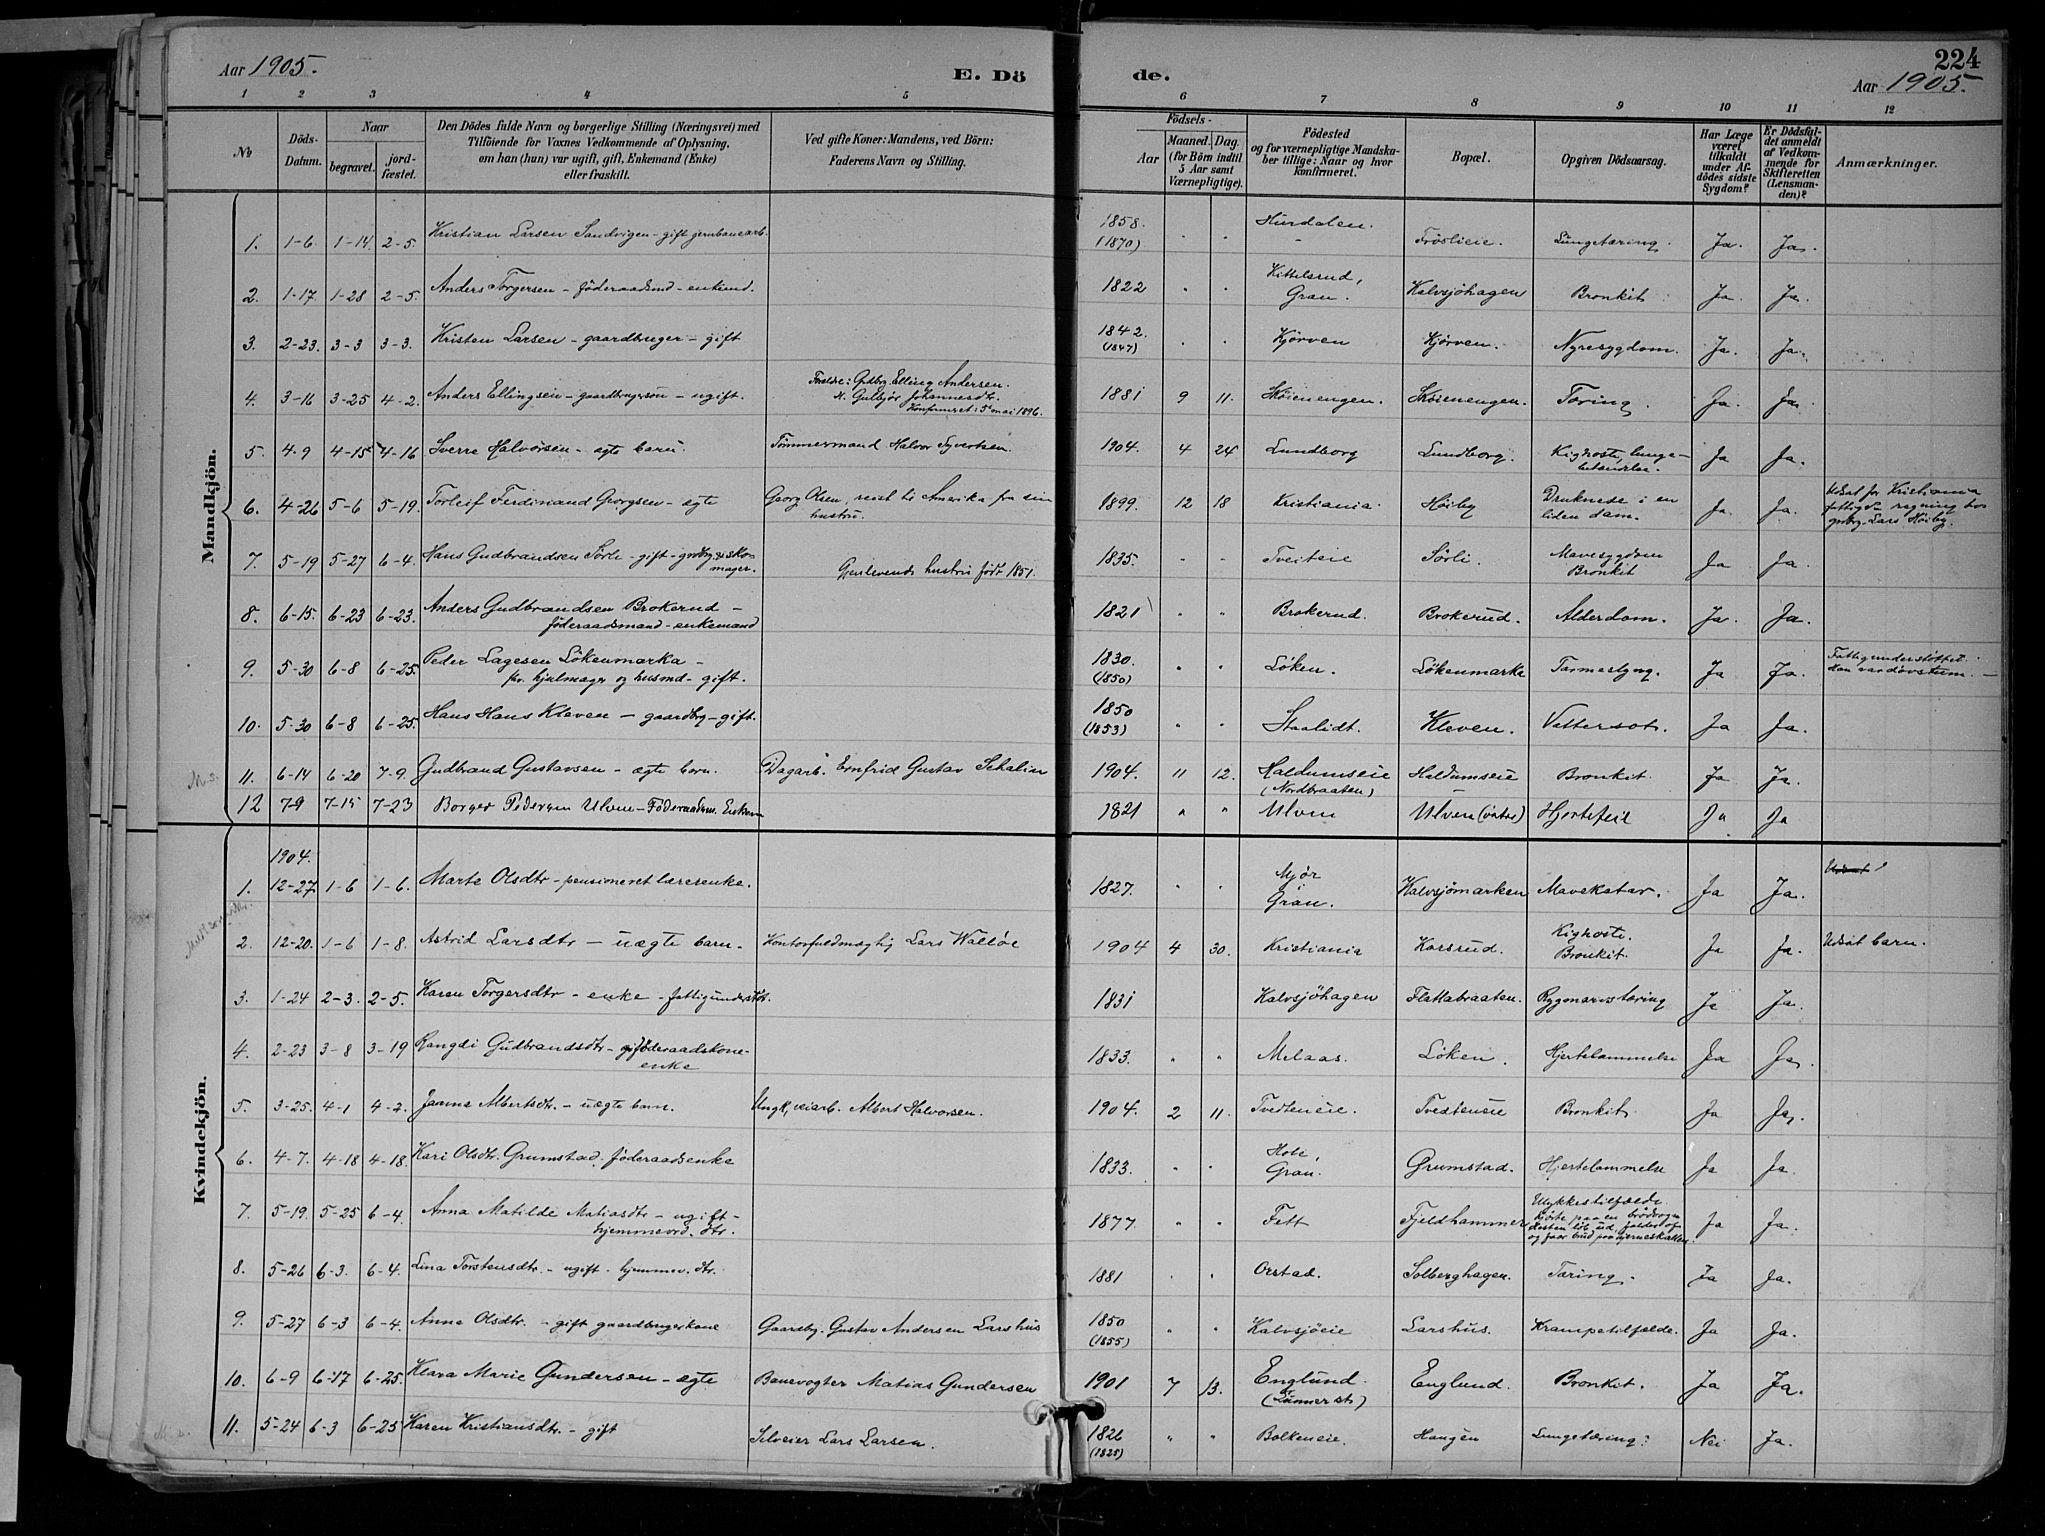 Aar 1905. E. Dö de. 224
Aar 1905.
1 2 3 4 5 6 7 8 9 10 11 12
№ Döds-Datum. Naar begravet. jordfæstet. Den Dödes fulde Navn og borgerlige Stilling (Næringsvei) med Tilföiende for Voxnes Vedkommende af Oplysning, om han (hun) var ugift, gift, Enkemand (Enke) eller fraskilt. Ved gifte Koner: Mandens, ved Börn: Faderens Navn og Stilling. Födsels- Aar Maaned. Dag. (for Börn indtil 5 Aar samt Værnepligtige). Födested og for værnepligtige Mandskaber tillige: Naar og hvor konfirmeret. Bopæl. Opgiven Dödsaarsag. Har Læge været tilkaldt under Afdödes sidste Sygdom? Er Dödsfaldet anmeldt af Vedkommende for Skifteretten (Lensmanden)? Anmærkninger.
Mandkjön.
1. 1-6. 1-14. 2-5. Kristian Larsen Sandvigen - gift jernbanearb. 1858. (1870) " " Hurdalen. Fröslieie. Lungetæring. Ja. Ja.
2. 1-17. 1-28 2-5. Anders Torgersen - föderaadsmd - enkemd. 1822 " " Kittelsrud, Gran. Kalvsjöhagen Bronkit Ja. Ja.
3. 2-23. 3-3 3-3. Kristen Larsen - gaardbruger - gift 1842. (1847) " " Kjörven Kjörven. Nyresygdom. Ja. Ja.
4. 3-16 3-25 4-2. Anders Ellingsen - gaardbrugersön - ugift. Forældre: Grdbrg. Elling Andersen. H. Gulbjör Johannesdtr. Konfirmeret: 5 mai 1896. 1881 9 11. Sköienengen. Sköienengen. Tæring. Ja. Ja.
5. 4-9 4-15 4-16 Sverre Halvorsen - ægte barn. Tömmermand Halvor Syvertsen. 1904. 4 24 Lundborg Lundborg. Kighoste, lungebetændelse. Ja Ja.
6. 4-26 5-6 5-19. Torleif Ferdinand Georgsen - ægte Georg Olsen, reist til Amerika fra sin hustru. 1899. 12 18 Kristiania. Höiby Druknede i en liden dam. Ja. Ja. Udsat for Kristiania fattigv. regning hos grdbrg. Lars Höiby.
7. 5-19 5-27 6-4. Hans Gudbrandsen Sörli - gift - grdbrg. og skomager. Gjenlevende hustru født 1851. 1835. " " Tveiteie Sörli. Mavesygdom Bronkit Ja Ja.
8. 6-15. 6-23 6-23. Anders Gudbrandsen Brokerud - föderaadsmand - enkemand 1821 " " Brokerud. Brokerud. Alderdom. Ja. Ja.
9. 5-30 6-8 6-25. Peder Lagesen Lökenmarka - fhv. hjulmager og husmd - gift. 1830. (1850) " " Löken. Lökenmarka Tarmeslyng. Ja Ja. Fattigunderstöttet. Han var døvstum.
10. 5-30 6-8 6-25. Hans Hans Kleven - gaardbrg - gift. 1850 (1853) " " Staalidt. Kleven. Vattersot. Ja Ja.
11. 6-14 6-20 7-9. Gudbrand Gustavsen - ægte barn. Dagarb. Ernfrid Gustav Schalin 1904. 11 12. Haldumseie (Nordbraaten) Haldumseie Bronkit. Ja Ja.
12 7-9 7-15 7-23 Borger Pedersen Ulven - Föderaadsm. Enkem 1821 " " Ulven Ulven (östre) Hjertefeil Ja Ja
Kvindekjön.
1. 1904. 12-27 1-6 1-6. Marte Olsdtr - pensioneret lærerenke. 1827. " " Mjör Gran. Kalvsjömarken Mavekatar. Ja Ja.
2. 12-20. 1-6 1-8. Astrid Larsdtr - uægte barn. Kontorfuldmægtig Lars Wallöe 1904 4 30. Kristiania Korsrud. Kighoste. Bronkit. Ja Ja. Udsat barn.
3. 1-24 2-3. 2-5. Karen Torgersdtr - enke - fattigunderstöt. 1831 Kalvsjöhagen Flattabraaten. Rygmarvstæring Ja Ja.
4. 2-23 3-8 3-19 Rangdi Gudbrandsdtr - föderaadskone - enke 1833. " " Melaas. Löken. Hjertelammelse Ja Ja.
5. 3-25. 4-1 4-2. Janna Albertsdtr. - uægte barn. Ungk, veiarb. Albert Halvorsen. 1904. 2 11. Tvedteneie. Tvedteneie Bronkit. Ja Ja.
6. 4-7. 4-18 4-18. Kari Olsdtr. Grumstad. föderaadsenke 1833. " " Hole, Gran. Grumstad. Hjertelammelse Ja Ja.
7. 5-19. 5-25 6-4. Anna Matilde Matiasdtr - ugift - hjemmevd. dtr. 1877. " " Fett Fjeldhammer Ulykkestilfælde. kjörte paa en brödvogn hesten löb ud, faldt af og faar brud paa hjerneskallen. Ja Ja.
8. 5-26 6-3. 6-4. Lina Torstensdtr. - ugift. hjemmev. dtr. 1881 " " Orstad. Solberghagen. Tæring. Ja Ja.
9. 5-27 6-3 6-4. Anne Olsdtr. - gift gaardbrugerkone Gaardbg. Gustav Andersen Larshus 1850 (1855) " " Kalvsjöeie Larshus. Krampetilfælde. Ja Ja.
10. 6-9 6-17 6-25. Klara Marie Gundersen - ægte Banevogter Matias Gundersen 1901 7 13. Englund. (Lunner st) Englund. Bronkit. Ja Ja.
11. 5-24 6-3 6-25 Karen Kristiansdtr. - gift Selveier Lars Larsen. 1826 (1825) " " Bolkeneie. Haugen Lungetæring. Nei Ja.